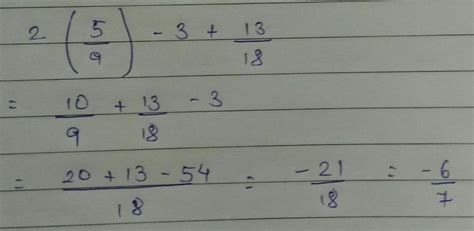 2 (5/9) - 3 + 13/18
= 10/9 + 13/18 - 3
= (20 + 13 - 54)/18 = -21/18 = -6/7